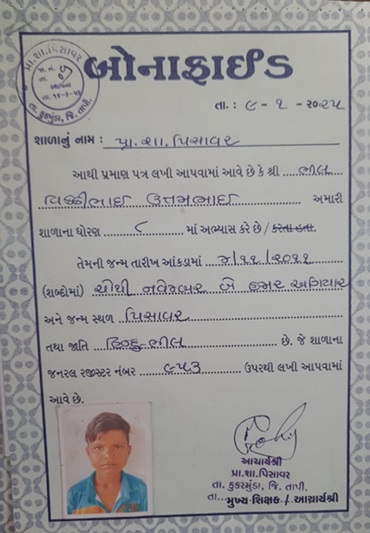 પ્રા.શા.પિસાવર
તા. કુકરમુંડા, જિ. તાપી.
બોનાફાઈડ
તા. : ૯ - ૧ - ૨૦૨૫
શાળાનું નામ : પ્રા. શા. પિસાવર
આથી પ્રમાણ પત્ર લખી આપવામાં આવે છે કે શ્રી ભીલ
વિક્કીભાઈ ઉત્તમભાઈ અમારી
શાળાના ધોરણ ૮ માં અભ્યાસ કરે છે / કરતા હતા.
તેમની જન્મ તારીખ આંકડામાં ૪/૧૧/૨૦૧૧
(શબ્દોમાં) ચોથી નવેમ્બર બે હજાર અગિયાર
અને જન્મ સ્થળ પિસાવર
તથા જાતિ હિન્દુ ભીલ છે. જે શાળાના
જનરલ રજીસ્ટર નંબર ૯૫૩ ઉપરથી લખી આપવામાં
આવે છે.
આચાર્યશ્રી
પ્રા.શા.પિસાવર
તા. કુકરમુંડા, જિ. તાપી.
તા... મુખ્ય શિક્ષક / આચાર્યશ્રી